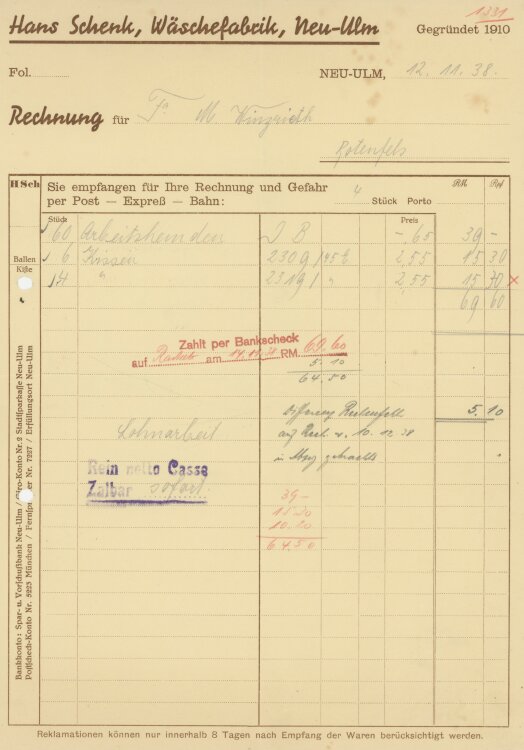 1331
Hans Schenk, Wäschefabrik, Neu-Ulm
Gegründet 1910
Fol.
NEU-ULM, 12. 11. 38.
Rechnung für Fa M.
Rotenfels
HSch
Sie empfangen für Ihre Rechnung und Gefahr
per Post — Expreß — Bahn: 4 Stück Porto
RM Rpf
Stück
Preis
60 Arbeitshemden J B -.65 39 -
Ballen
Kiste
6 Kissen 2309/45 2,55 15 30
" 2319/ " 2,55 15 30 ×
69 60
Zahlt per Bankscheck
auf am RM. 69.60
5.10
64.50
Differenz
5.10
auf Rech. v. 10.12.38
in Abzug gebracht
Lohnarbeit
Rein netto Casse
Zalbar sofort
39 -
15.30
10.20
64.50
Bankkonto: Spar- u. Vorschußbank Neu-Ulm / Giro-Konto Nr. 2 Stadtsparkasse Neu-Ulm
Postscheck-Konto Nr. 5223 München / Fernsprecher Nr. 7227 / Erfüllungsort Neu-Ulm
Reklamationen können nur innerhalb 8 Tagen nach Empfang der Waren berücksichtigt werden.